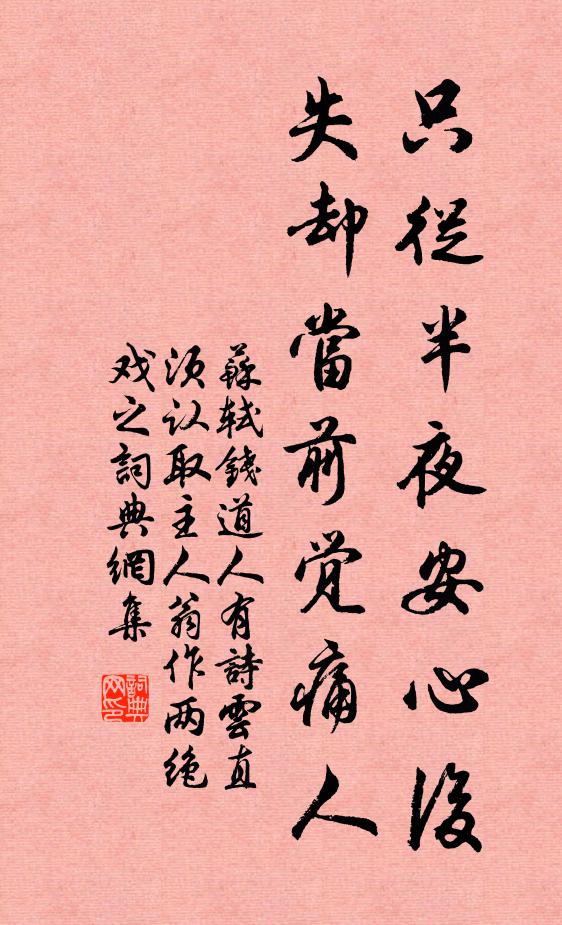 只從半夜安心後
失却當前覚痛人
蘇軾錢道人有詩雲直
須认取主人翁作两绝
戏之詞典網集
詞典网印